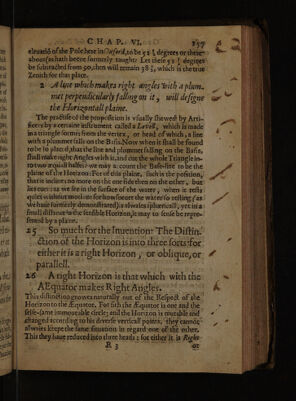 CHAP. VI. 197
elevatiõ of the Pole here in Oxford, to be 51 ½ degrees or there
about, as hath beene formerly taught: Let these 51 ½ degrees
be substracted from 90, then will remain 38 ½, which is the true
Zenith for that place.
2 A line which makes right angles with a plum-
met perpendicularly falling on it, will designe
the Horizontall plaine.
The practise of the proposition is vsually shewed by Arti-
ficers by a certaine instrument called a Levell, which is made
in a triangle forme: from the vertex, or head of which, a line
with a plummet falls on the Basis. Now when it shall be found
to be so placed, that the line and plummet falling on the Basis,
shall make right Angles with it, and cut the whole Triangle in-
to two equall halfes: we may account the Base-line to be the
plaine of the Horizon: For of this plaine, such is the position,
that it inclines no more on the one side then on the other, but
lies even: as we see in the surface of the water, when it rests
quiet without motiõ: for howsoever the water so resting (as
we haue formerly demonstrated) is alwaies sphericall, yet in a
small distance as the sensible Horizon, it may to sense be repre-
sented by a plaine.
25 So much for the Invention: The Distin-
ction of the Horizon is into three sorts: for
either it is a right Horizon, or oblique, or
parallell.
26 A right Horizon is that which with the
AEquator makes Right Angles.
This distinction growes naturally out of the Respect of the
Horizon to the Æquator. For sith the Æquator is one and the
selfe-same immoveable circle; and the Horizon is mutable and
changed according to his diverse verticall points, they cannot
alwaies keepe the same situation in regard one of the other.
This they have reduced into three heads: for either it is Right
R 3 or